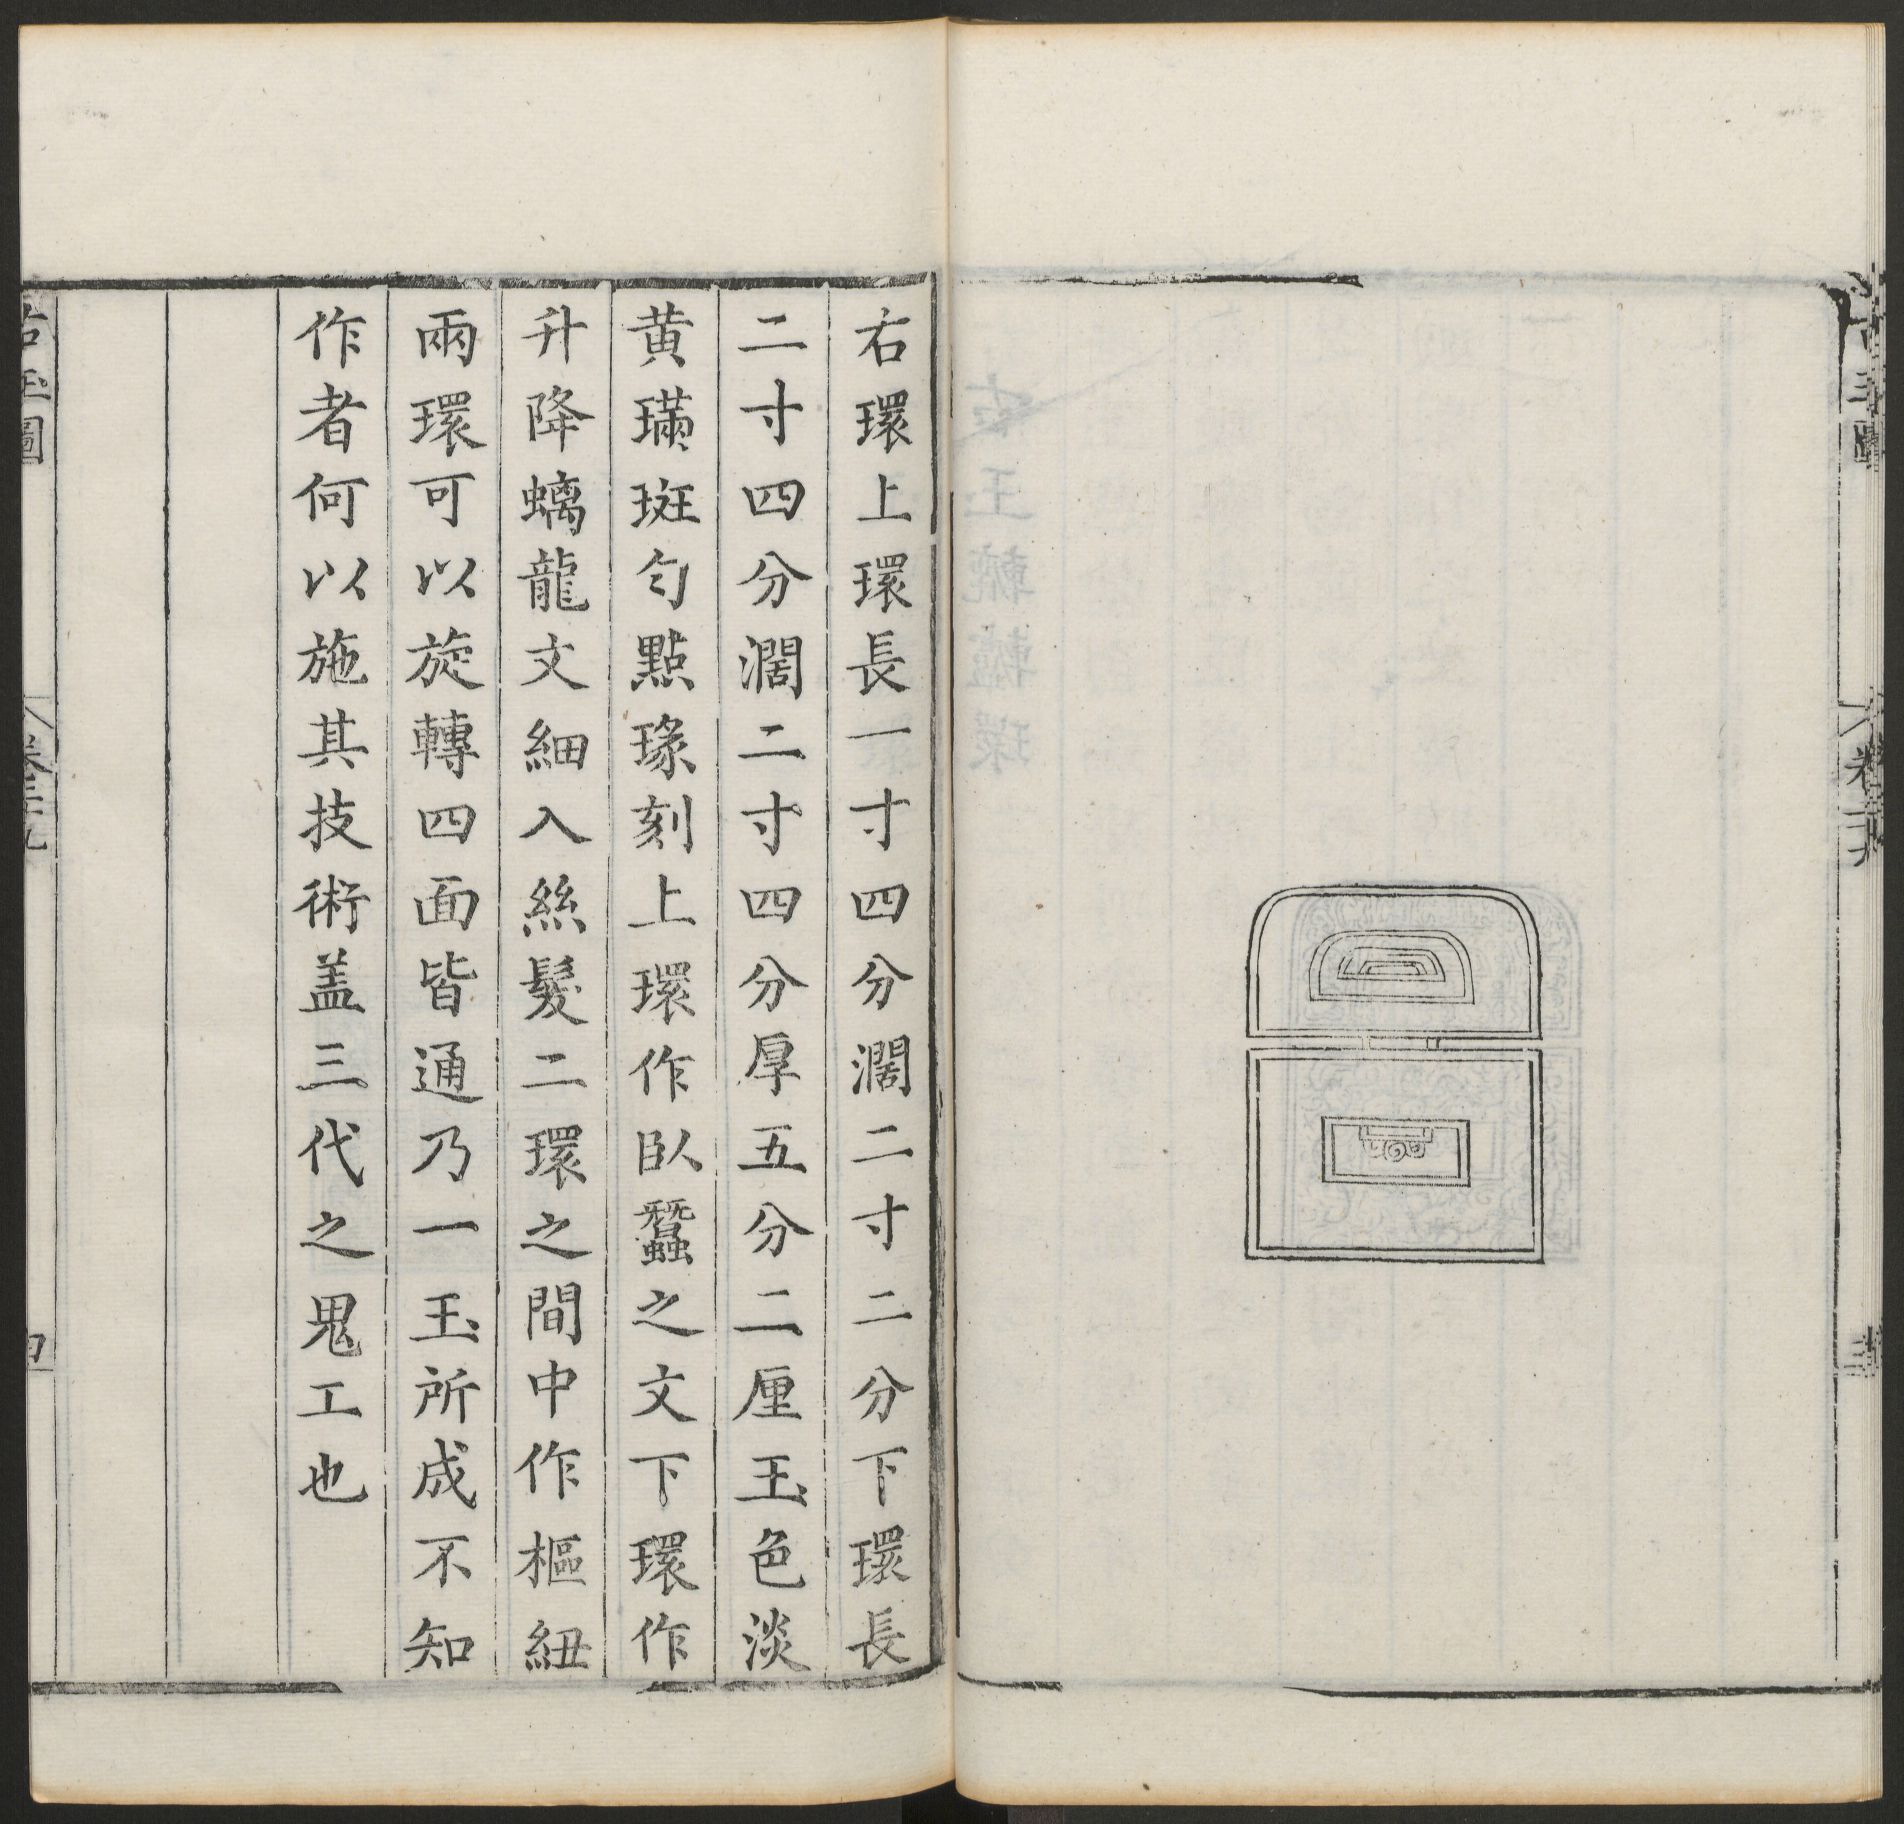 右環上環長一寸四分濶二寸二分下環長
二寸四分濶二寸四分厚五分二厘玉色淡
黄璊斑匀點瑑刻上環作臥蠶之文下環作
升降螭龍文細入絲髮二環之間中作樞紐
兩環可以旋轉四面皆通乃一玉所成不知
作者何以施其技術盖三代之鬼工也